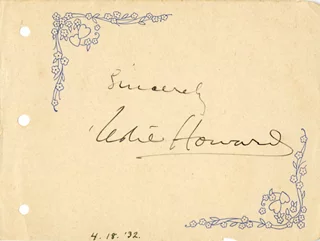 Sincerely
Leslie Howard
4. 18. '32.